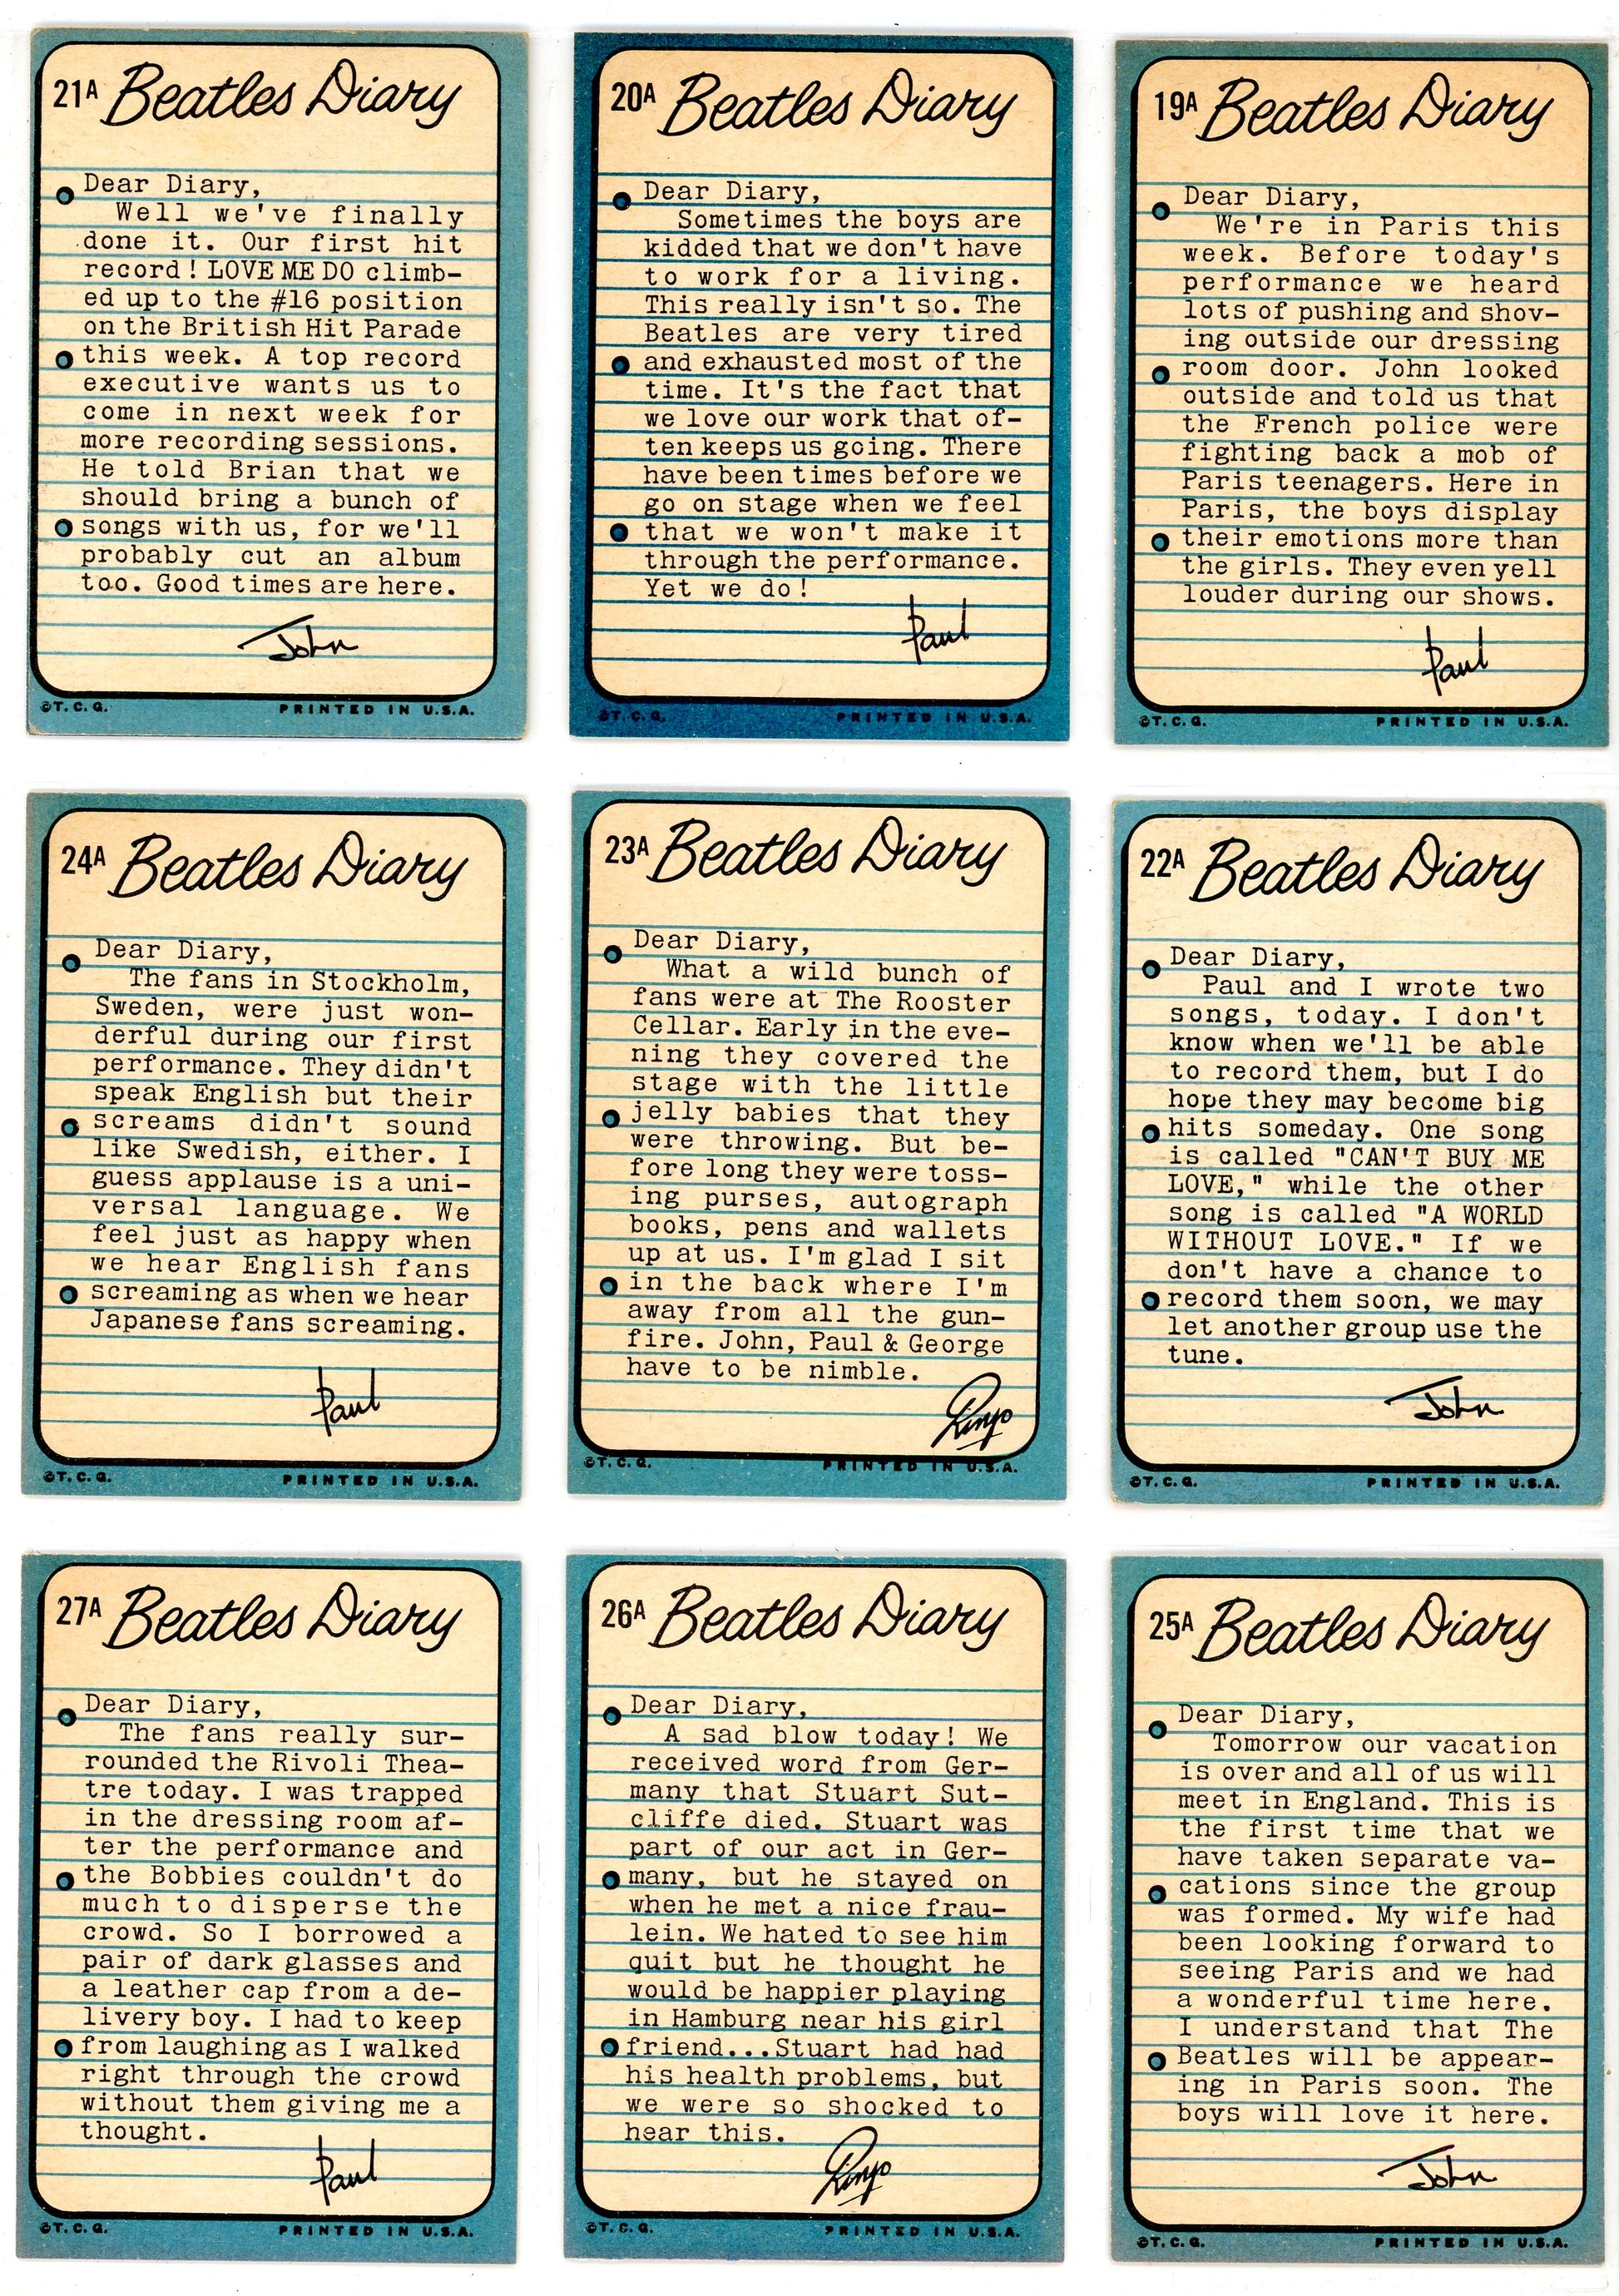 21A Beatles Diary
Dear Diary,
Well we've finally
done it. Our first hit
record! LOVE ME DO climb-
ed up to the #16 position
on the British Hit Parade
this week. A top record
executive wants us to
come in next week for
more recording sessions.
He told Brian that we
should bring a bunch of
songs with us, for we'll
probably cut an album
too. Good times are here.
John
©T.C.G. PRINTED IN U.S.A.
20A Beatles Diary
Dear Diary,
Sometimes the boys are
kidded that we don't have
to work for a living.
This really isn't so. The
Beatles are very tired
and exhausted most of the
time. It's the fact that
we love our work that of-
ten keeps us going. There
have been times before we
go on stage when we feel
that we won't make it
through the performance.
Yet we do!
Paul
©T.C.G. PRINTED IN U.S.A.
19A Beatles Diary
Dear Diary,
We're in Paris this
week. Before today's
performance we heard
lots of pushing and shov-
ing outside our dressing
room door. John looked
outside and told us that
the French police were
fighting back a mob of
Paris teenagers. Here in
Paris, the boys display
their emotions more than
the girls. They even yell
louder during our shows.
Paul
©T.C.G. PRINTED IN U.S.A.
24A Beatles Diary
Dear Diary,
The fans in Stockholm,
Sweden, were just won-
derful during our first
performance. They didn't
speak English but their
screams didn't sound
like Swedish, either. I
guess applause is a uni-
versal language. We
feel just as happy when
we hear English fans
screaming as when we hear
Japanese fans screaming.
Paul
©T.C.G. PRINTED IN U.S.A.
23A Beatles Diary
Dear Diary,
What a wild bunch of
fans were at The Rooster
Cellar. Early in the eve-
ning they covered the
stage with the little
jelly babies that they
were throwing. But be-
fore long they were toss-
ing purses, autograph
books, pens and wallets
up at us. I'm glad I sit
in the back where I'm
away from all the gun-
fire. John, Paul & George
have to be nimble.
Ringo
©T.C.G. PRINTED IN U.S.A.
22A Beatles Diary
Dear Diary,
Paul and I wrote two
songs, today. I don't
know when we'll be able
to record them, but I do
hope they may become big
hits someday. One song
is called "CAN'T BUY ME
LOVE," while the other
song is called "A WORLD
WITHOUT LOVE." If we
don't have a chance to
record them soon, we may
let another group use the
tune.
John
©T.C.G. PRINTED IN U.S.A.
27A Beatles Diary
Dear Diary,
The fans really sur-
rounded the Rivoli Thea-
tre today. I was trapped
in the dressing room af-
ter the performance and
the Bobbies couldn't do
much to disperse the
crowd. So I borrowed a
pair of dark glasses and
a leather cap from a de-
livery boy. I had to keep
from laughing as I walked
right through the crowd
without them giving me a
thought.
Paul
©T.C.G. PRINTED IN U.S.A.
26A Beatles Diary
Dear Diary,
A sad blow today! We
received word from Ger-
many that Stuart Sut-
cliffe died. Stuart was
part of our act in Ger-
many, but he stayed on
when he met a nice frau-
lein. We hated to see him
quit but he thought he
would be happier playing
in Hamburg near his girl
friend...Stuart had had
his health problems, but
we were so shocked to
hear this.
Ringo
©T.C.G. PRINTED IN U.S.A.
25A Beatles Diary
Dear Diary,
Tomorrow our vacation
is over and all of us will
meet in England. This is
the first time that we
have taken separate va-
cations since the group
was formed. My wife had
been looking forward to
seeing Paris and we had
a wonderful time here.
I understand that The
Beatles will be appear-
ing in Paris soon. The
boys will love it here.
John
©T.C.G. PRINTED IN U.S.A.